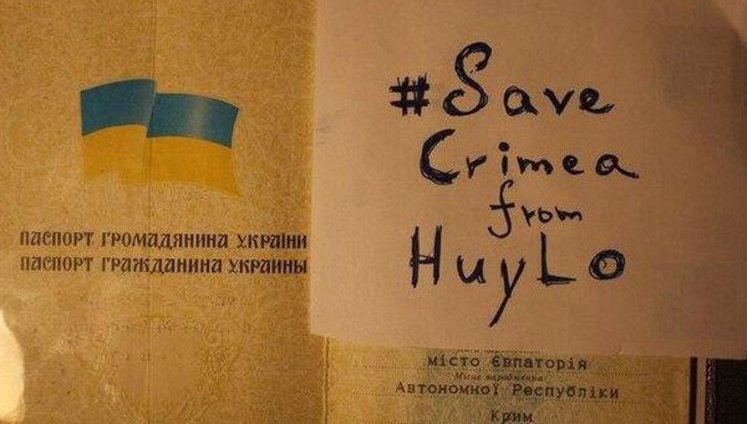 ПАСПОРТ ГРОМАДЯНИНА УКРАЇНИ
ПАСПОРТ ГРАЖДАНИНА УКРАИНЫ
#Save
Crimea
from
HuyLo
місто Євпаторія
Місце народження
Автономної Республіки
Крим